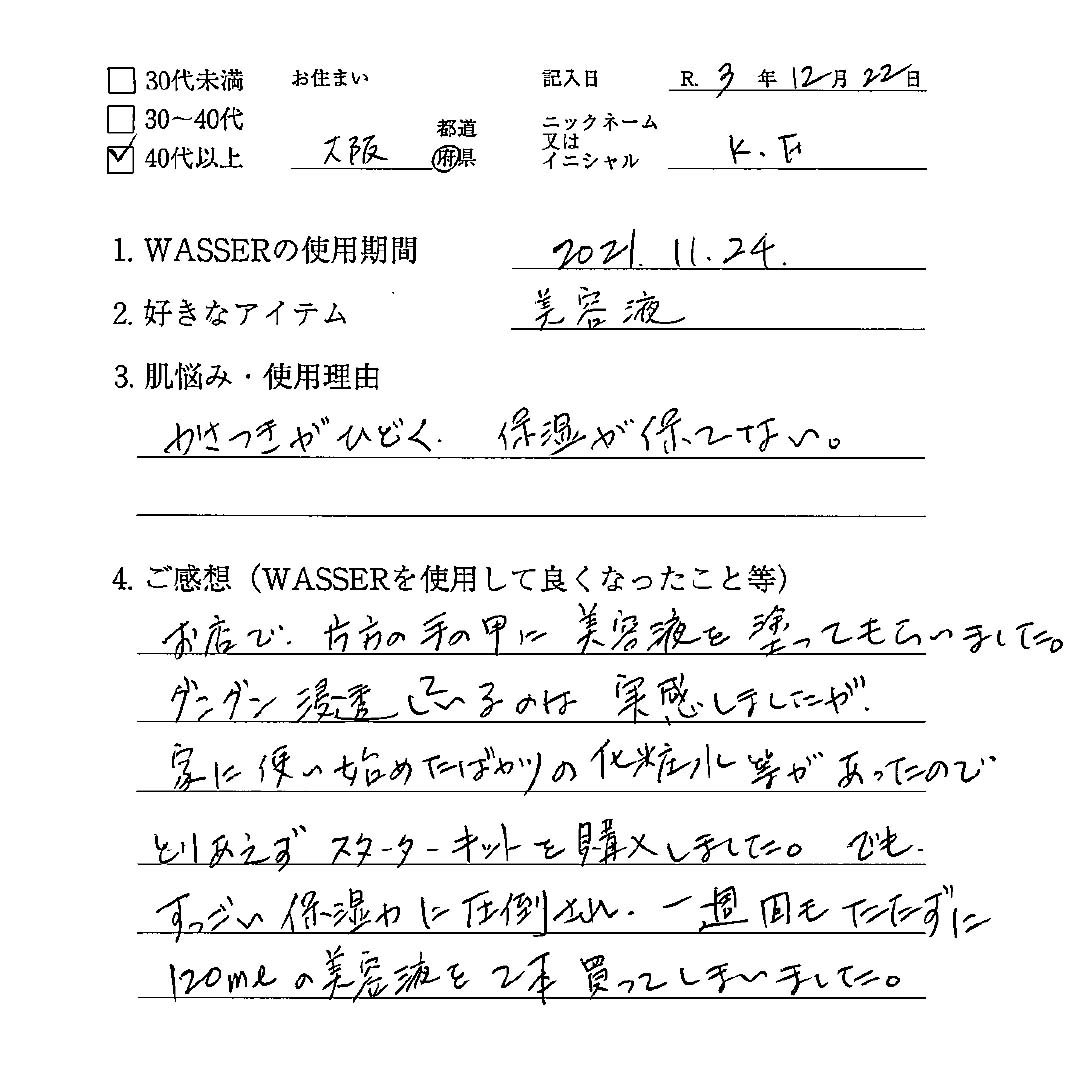 30代未満 お住まい 記入日 R. 3 年 12 月 22 日
30〜40代 都道 ニックネーム
又は
40代以上 大阪 府県 イニシャル K.E
1. WASSERの使用期間 2021. 11. 24.
2. 好きなアイテム 美容液
3. 肌悩み・使用理由
かさつきがひどく. 保湿が保てない。
4. ご感想（WASSERを使用して良くなったこと等）
お店で. 片方の手の甲に美容液を塗ってもらいました。
グングン浸透しているのは実感しましたが.
家に使い始めたばかりの化粧水等があったので
とりあえずスターターキットを購入しました。でも.
すっごい保湿力に圧倒され. 一週間もたたずに
120mlの美容液を2本買ってしまいました。